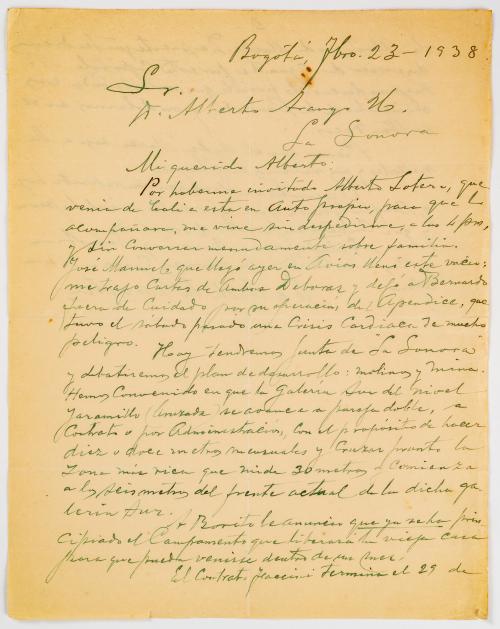 Bogotá, Fbro. 23 - 1938
Sr.
D. Alberto Arango U.
La Sonora
Mi querido Alberto:
Por haberme invitado Alberto Lotero, que
venia de Cali a esta en Auto propio, para que lo
acompañara, me vine sin despedirme, a las 4 pm,
y sin conversar menudamente sobre familia.
José Manuel, que llegó ayer en Avión
me trajo Cartas de ambas Deboras y dejó a Bernardo
fuera de Cuidado por su operación de Apendice, que
tuvo el sabado pasado una Crisis Cardiaca de mucho
peligro. Hoy tendremos Junta de "La Sonora"
y debatiremos el plan de desarrollo: molinos y mina.
Hemos Convenido en que la Galería Sur del nivel
Jaramillo se avance a pareja doble, a
Contrato o por Administración, con el proposito de hacer
diez o doce metros mensuales y Cruzar pronto la
Zona mas rica que mide 36 metros y Comienza
a los seis metros del frente actual de la dicha ga-
lería Sur.
A Borito le anuncio que ya se ha prin-
cipiado el Campamento que liberará la vieja casa
para que pueda venirse dentro de un mes.
El Contrato termina el 29 de